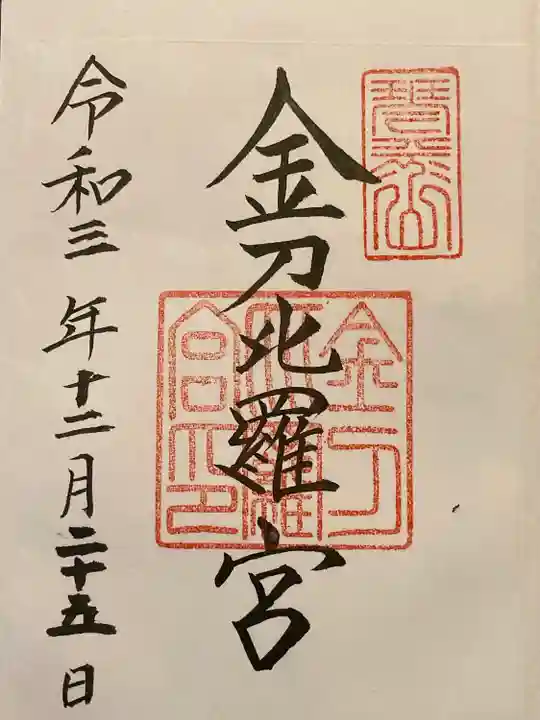 琴平山
金刀比羅宮
金刀比羅宮印
令和三年十二月二十五日